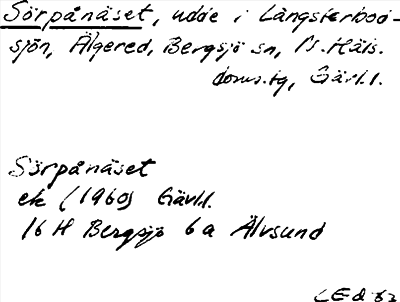 Sörpånäset, udde i Långsterbod-
sjön, Älgered, Bergsjö sn, N. Häls.
doms.tg, Gävl.l.
Sörpånäset
ek (1960) Gävl.l.
16 H Bergsjö 6 a Älvsund